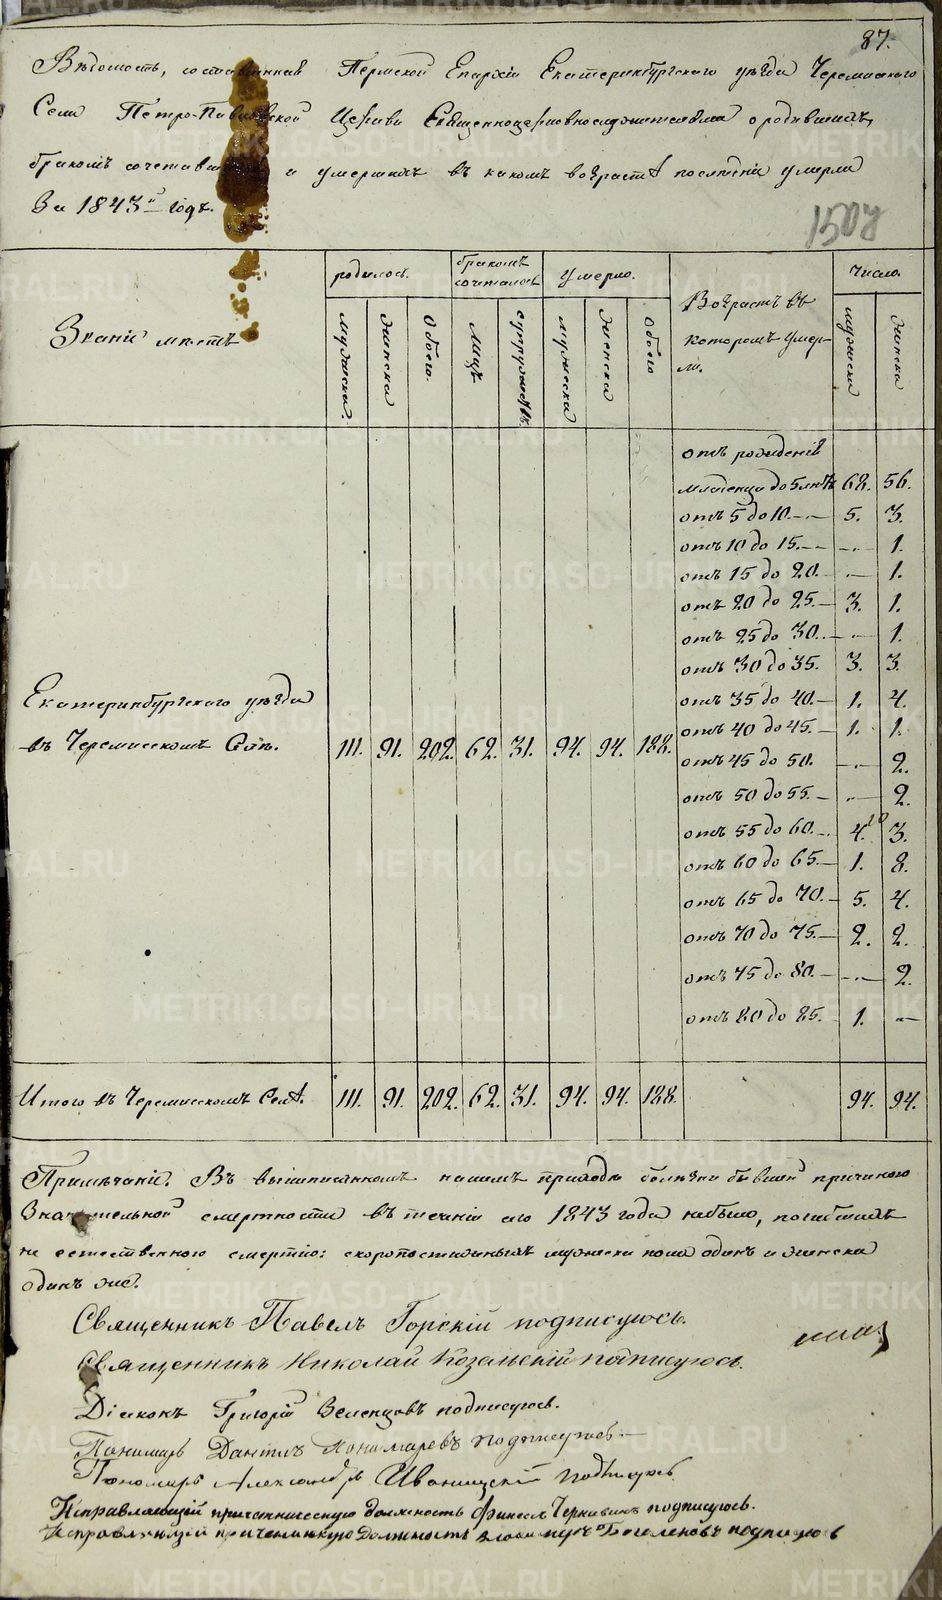 87.
Вѣдомость, составленная Пермской Епархіи Екатеринбургского уѣзда Черемисского
Села Петро-Павловской Церкви Священноцерковнослужителями о родившихъ,
бракомъ сочетавшихъ и умершихъ въ какомъ возрастѣ послѣдніи умерли
За 1843й годъ.
Званіе мѣстъ
родилось.
бракомъ сочеталось
умерло.
Возрастъ въ которомъ умерли.
Число.
мужеска.
женска
Обоего.
Лицъ
супружествъ.
мужеска
женска
Обоего
мужеска
женска
отъ рожденія
младенца до 5 лѣтъ 68. 56.
отъ 5 до 10.— 5. 3.
отъ 10 до 15.— — 1.
отъ 15 до 20.— — 1.
отъ 20 до 25.— 3. 1.
отъ 25 до 30.— — 1.
отъ 30 до 35. 3. 3.
отъ 35 до 40.— 1. 4.
отъ 40 до 45.— 1. 1.
отъ 45 до 50. — 2.
отъ 50 до 55.— — 2.
отъ 55 до 60.— 4. 3.
отъ 60 до 65.— 1. 8.
отъ 65 до 70.— 5. 4.
отъ 70 до 75.— 2. 2.
отъ 75 до 80.— — 2.
отъ 80 до 85.— 1. —
Екатеринбургского уѣзда
въ Черемисскомъ Селѣ. 111. 91. 202. 62. 31. 94. 94. 188.
Итого въ Черемисскомъ Селѣ. 111. 91. 202. 62. 31. 94. 94. 188. 94. 94.
Примѣчаніе. Въ вышеписанномъ нашемъ приходѣ болѣзни бывшей причиною
значительной смертности въ теченіи сего 1843 года небыло, погибшихъ
не естественною смертію: скоропостижныхъ мужеска пола одинъ и женска
одинъ же.
Священникъ Павелъ Горскій подписуюсь.
Священникъ Николай Козельскій подписуюсь.
Діаконъ Григорій Зеленцовъ подписуюсь.
Пономарь Даніилъ Пономаревъ подписуюсь.—
Пономарь Александръ Иваницкій подписуюсь
Исправляющій причетническую должность подписуюсь.
Исправляющій причетническую должность подписуюсь
METRIKI.GASO-URAL.RU